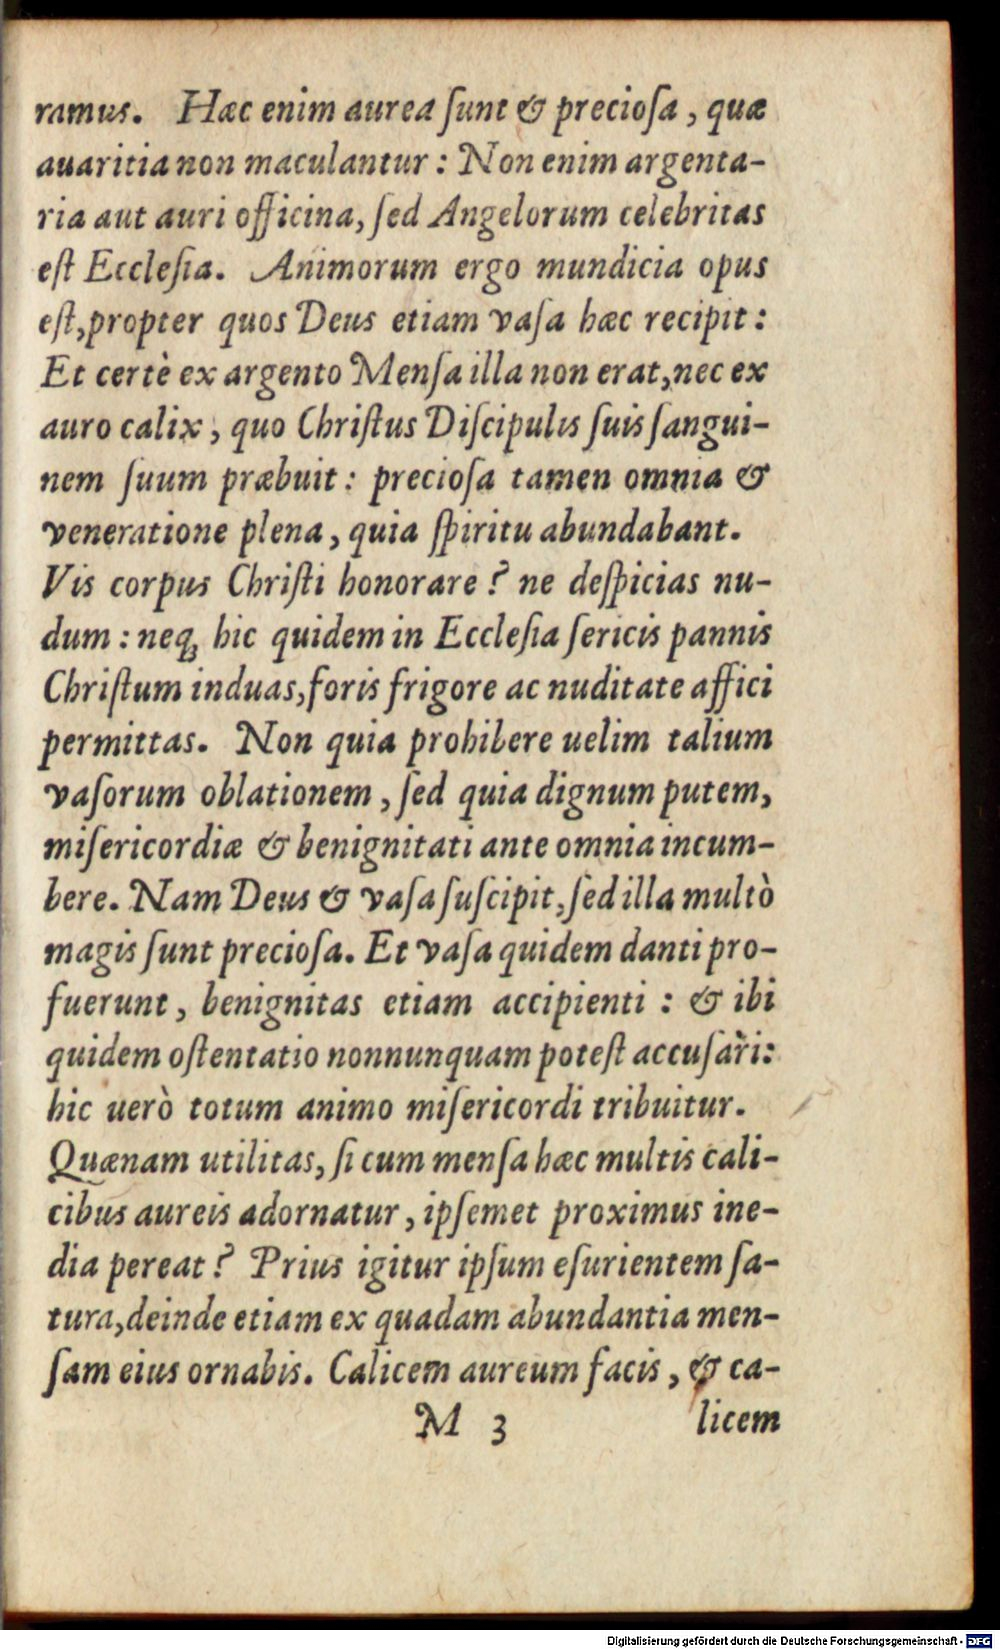 ramus. Hæc enim aurea ſunt & precioſa, quæ
auaritia non maculantur: Non enim argenta-
ria aut auri officina, ſed Angelorum celebritas
eſt Eccleſia. Animorum ergo mundicia opus
eſt, propter quos Deus etiam vaſa hæc recipit:
Et certè ex argento Menſa illa non erat, nec ex
auro calix, quo Chriſtus Diſcipulis ſuis ſangui-
nem ſuum præbuit: precioſa tamen omnia &
veneratione plena, quia ſpiritu abundabant.
Vis corpus Chriſti honorare? ne deſpicias nu-
dum: neq; hic quidem in Eccleſia ſericis pannis
Chriſtum induas, foris frigore ac nuditate affici
permittas. Non quia prohibere uelim talium
vaſorum oblationem, ſed quia dignum putem,
miſericordiæ & benignitati ante omnia incum-
bere. Nam Deus & vaſa ſuſcipit, ſed illa multò
magis ſunt precioſa. Et vaſa quidem danti pro-
fuerunt, benignitas etiam accipienti: & ibi
quidem oſtentatio nonnunquam poteſt accuſari:
hic uerò totum animo miſericordi tribuitur.
Quænam utilitas, ſi cum menſa hæc multis cali-
cibus aureis adornatur, ipſemet proximus ine-
dia pereat? Prius igitur ipſum eſurientem ſa-
tura, deinde etiam ex quadam abundantia men-
ſam eius ornabis. Calicem aureum facis, & ca-
M 3 licem
Digitalisierung gefördert durch die Deutsche Forschungsgemeinschaft - DFG